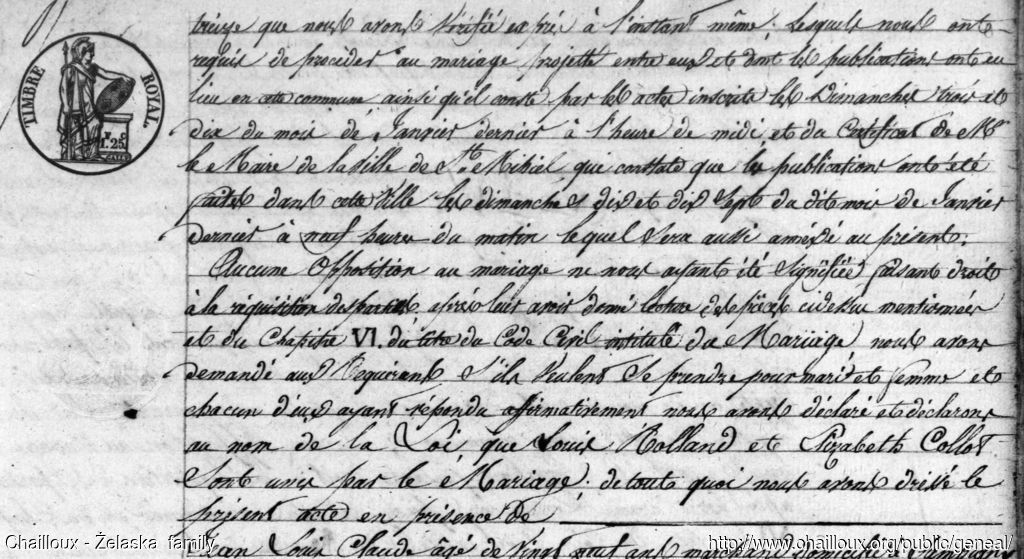 treize que nous avons vérifié exprès à l'instant même. Lesquels nous ont
requis de procéder au mariage projetté entre eux et dont les publications ont eu
lieu en cette commune ainsi qu'il conste par les actes inscrits les Dimanches trois et
dix du mois de Janvier dernier à l'heure de midi et du Certificat de Mr
le Maire de la Ville de St. Mihiel que constate que les publications ont été
faites dans cette Ville les dimanches dix et dix sept du dit mois de Janvier
dernier à neuf heures du matin lequel sera aussi annexé au présent.
Aucune Opposition au mariage ne nous ayant été signifiée faisant droit
à la réquisition des parties après leur avoir donné lecture des pièces cidessus mentionnées
et du Chapitre VI. du titre du Code Civil intitulé du Mariage nous avons
demandé aux Requérants s'ils veulent se prendre pour mari et femme et
chacun d'eux ayant répondu affirmativement nous avons déclaré et déclarons
au nom de la Loi, que Louis Rolland et Elizabeth Collot
Sont unis par le Mariage. de tout quoi nous avons dressé le
présent acte en présence de
Jean Louis Claude âgé de vingt neuf ans
TIMBRE ROYAL.
1.25
Chailloux - Żelaska family
http://www.chailloux.org/public/geneal/